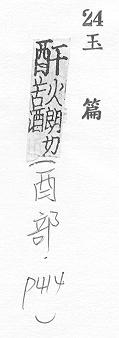 24
玉篇
酐火朗切苦酒(酉部.P414)